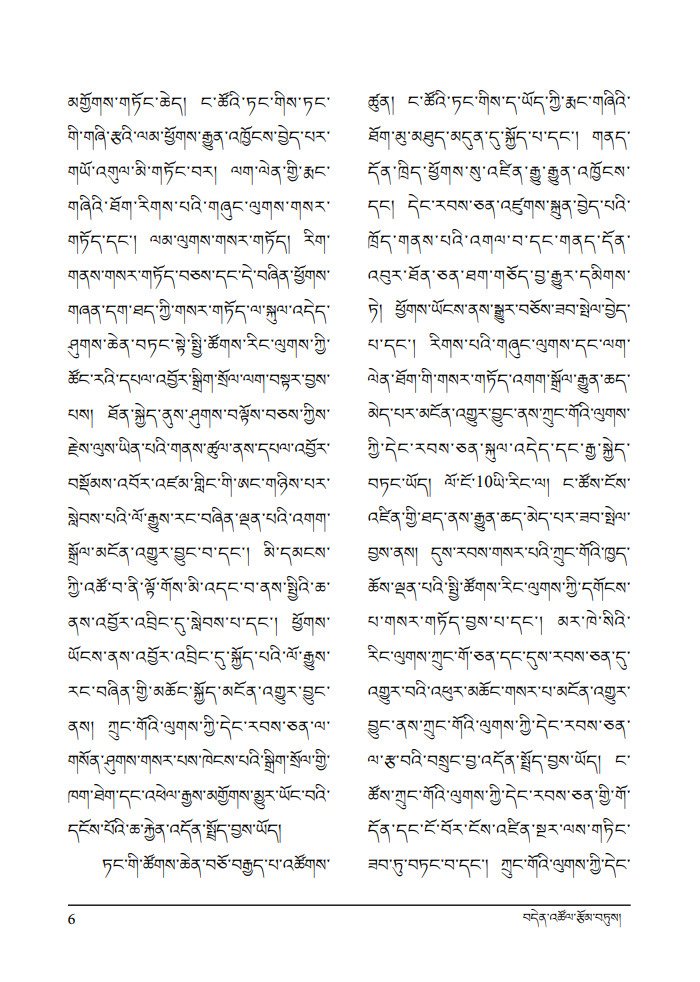 མགྱོགས་གཏོང་ཆེད། ང་ཚོའི་ཏང་གིས་ཏང་
གི་གཞི་རྩའི་ལམ་ཕྱོགས་རྒྱུན་འཁྱོངས་བྱེད་པར་
གཡོ་འགུལ་མི་གཏོང་བར། ལག་ལེན་གྱི་རྨང་
གཞིའི་ཐོག་རིགས་པའི་གཞུང་ལུགས་གསར་
གཏོད་དང་། ལམ་ལུགས་གསར་གཏོད། རིག་
གནས་གསར་གཏོད་བཅས་དང་དེ་བཞིན་ཕྱོགས་
གཞན་དག་ཐད་ཀྱི་གསར་གཏོད་ལ་སྐུལ་འདེད་
ཤུགས་ཆེན་བཏང་སྟེ་སྤྱི་ཚོགས་རིང་ལུགས་ཀྱི་
ཚོང་རའི་དཔལ་འབྱོར་སྒྲིག་སྲོལ་ལག་བསྟར་བྱས་
པས། ཐོན་སྐྱེད་ནུས་ཤུགས་བལྟོས་བཅས་ཀྱིས་
རྗེས་ལུས་ཡིན་པའི་གནས་ཚུལ་ནས་དཔལ་འབྱོར་
བསྡོམས་འབོར་འཛམ་གླིང་གི་ཨང་གཉིས་པར་
སླེབས་པའི་ལོ་རྒྱུས་རང་བཞིན་ལྡན་པའི་འགག་
སྒྲོལ་མངོན་འགྱུར་བྱུང་བ་དང་། མི་དམངས་
ཀྱི་འཚོ་བ་ནི་ལྟོ་གོས་མི་འདང་བ་ནས་སྤྱིའི་ཆ་
ནས་འབྱོར་འབྲིང་དུ་སླེབས་པ་དང་། ཕྱོགས་
ཡོངས་ནས་འབྱོར་འབྲིང་དུ་སྐྱོད་པའི་ལོ་རྒྱུས་
རང་བཞིན་གྱི་མཆོང་སྐྱོད་མངོན་འགྱུར་བྱུང་
ནས། ཀྲུང་གོའི་ལུགས་ཀྱི་དེང་རབས་ཅན་ལ་
གསོན་ཤུགས་གསར་པས་ཁེངས་པའི་སྒྲིག་སྲོལ་གྱི་
ཁག་ཐེག་དང་འཕེལ་རྒྱས་མགྱོགས་མྱུར་ཡོང་བའི་
དངོས་པོའི་ཆ་རྐྱེན་འདོན་སྤྲོད་བྱས་ཡོད།
ཏང་གི་ཚོགས་ཆེན་བཅོ་བརྒྱད་པ་འཚོགས་
ཚུན། ང་ཚོའི་ཏང་གིས་ད་ཡོད་ཀྱི་རྨང་གཞིའི་
ཐོག་མུ་མཐུད་མདུན་དུ་སྐྱོད་པ་དང་། གནད་
དོན་ཁྲིད་ཕྱོགས་སུ་འཛིན་རྒྱུ་རྒྱུན་འཁྱོངས་
དང། དེང་རབས་ཅན་འཛུགས་སྐྲུན་བྱེད་པའི་
ཁྲོད་གནས་པའི་འགལ་བ་དང་གནད་དོན་
འབུར་ཐོན་ཅན་ཐག་གཅོད་བྱ་རྒྱུར་དམིགས་
ཏེ། ཕྱོགས་ཡོངས་ནས་སྒྱུར་བཅོས་ཟབ་སྤེལ་བྱེད་
པ་དང་། རིགས་པའི་གཞུང་ལུགས་དང་ལག་
ལེན་ཐོག་གི་གསར་གཏོད་འགག་སྒྲོལ་རྒྱུན་ཆད་
མེད་པར་མངོན་འགྱུར་བྱུང་ནས་ཀྲུང་གོའི་ལུགས་
ཀྱི་དེང་རབས་ཅན་སྐུལ་འདེད་དང་རྒྱ་སྐྱེད་
བཏང་ཡོད། ལོ་ངོ་10ཡི་རིང་ལ། ང་ཚོས་ངོས་
འཛིན་གྱི་ཐད་ནས་རྒྱུན་ཆད་མེད་པར་ཟབ་སྤེལ་
བྱས་ནས། དུས་རབས་གསར་པའི་ཀྲུང་གོའི་ཁྱད་
ཆོས་ལྡན་པའི་སྤྱི་ཚོགས་རིང་ལུགས་ཀྱི་དགོངས་
པ་གསར་གཏོད་བྱས་པ་དང་། མར་ཁེ་སིའི་
རིང་ལུགས་ཀྲུང་གོ་ཅན་དང་དུས་རབས་ཅན་དུ་
འགྱུར་བའི་འཕུར་མཆོང་གསར་པ་མངོན་འགྱུར་
བྱུང་ནས་ཀྲུང་གོའི་ལུགས་ཀྱི་དེང་རབས་ཅན་
ལ་རྩ་བའི་བསྲུང་བྱ་འདོན་སྤྲོད་བྱས་ཡོད། ང་
ཚོས་ཀྲུང་གོའི་ལུགས་ཀྱི་དེང་རབས་ཅན་གྱི་གོ་
དོན་དང་ངོ་བོར་ངོས་འཛིན་སྔར་ལས་གཏིང་
ཟབ་ཏུ་བཏང་བ་དང་། ཀྲུང་གོའི་ལུགས་ཀྱི་དེང་
6
བདེན་འཚོལ་རྩོམ་བཏུས།